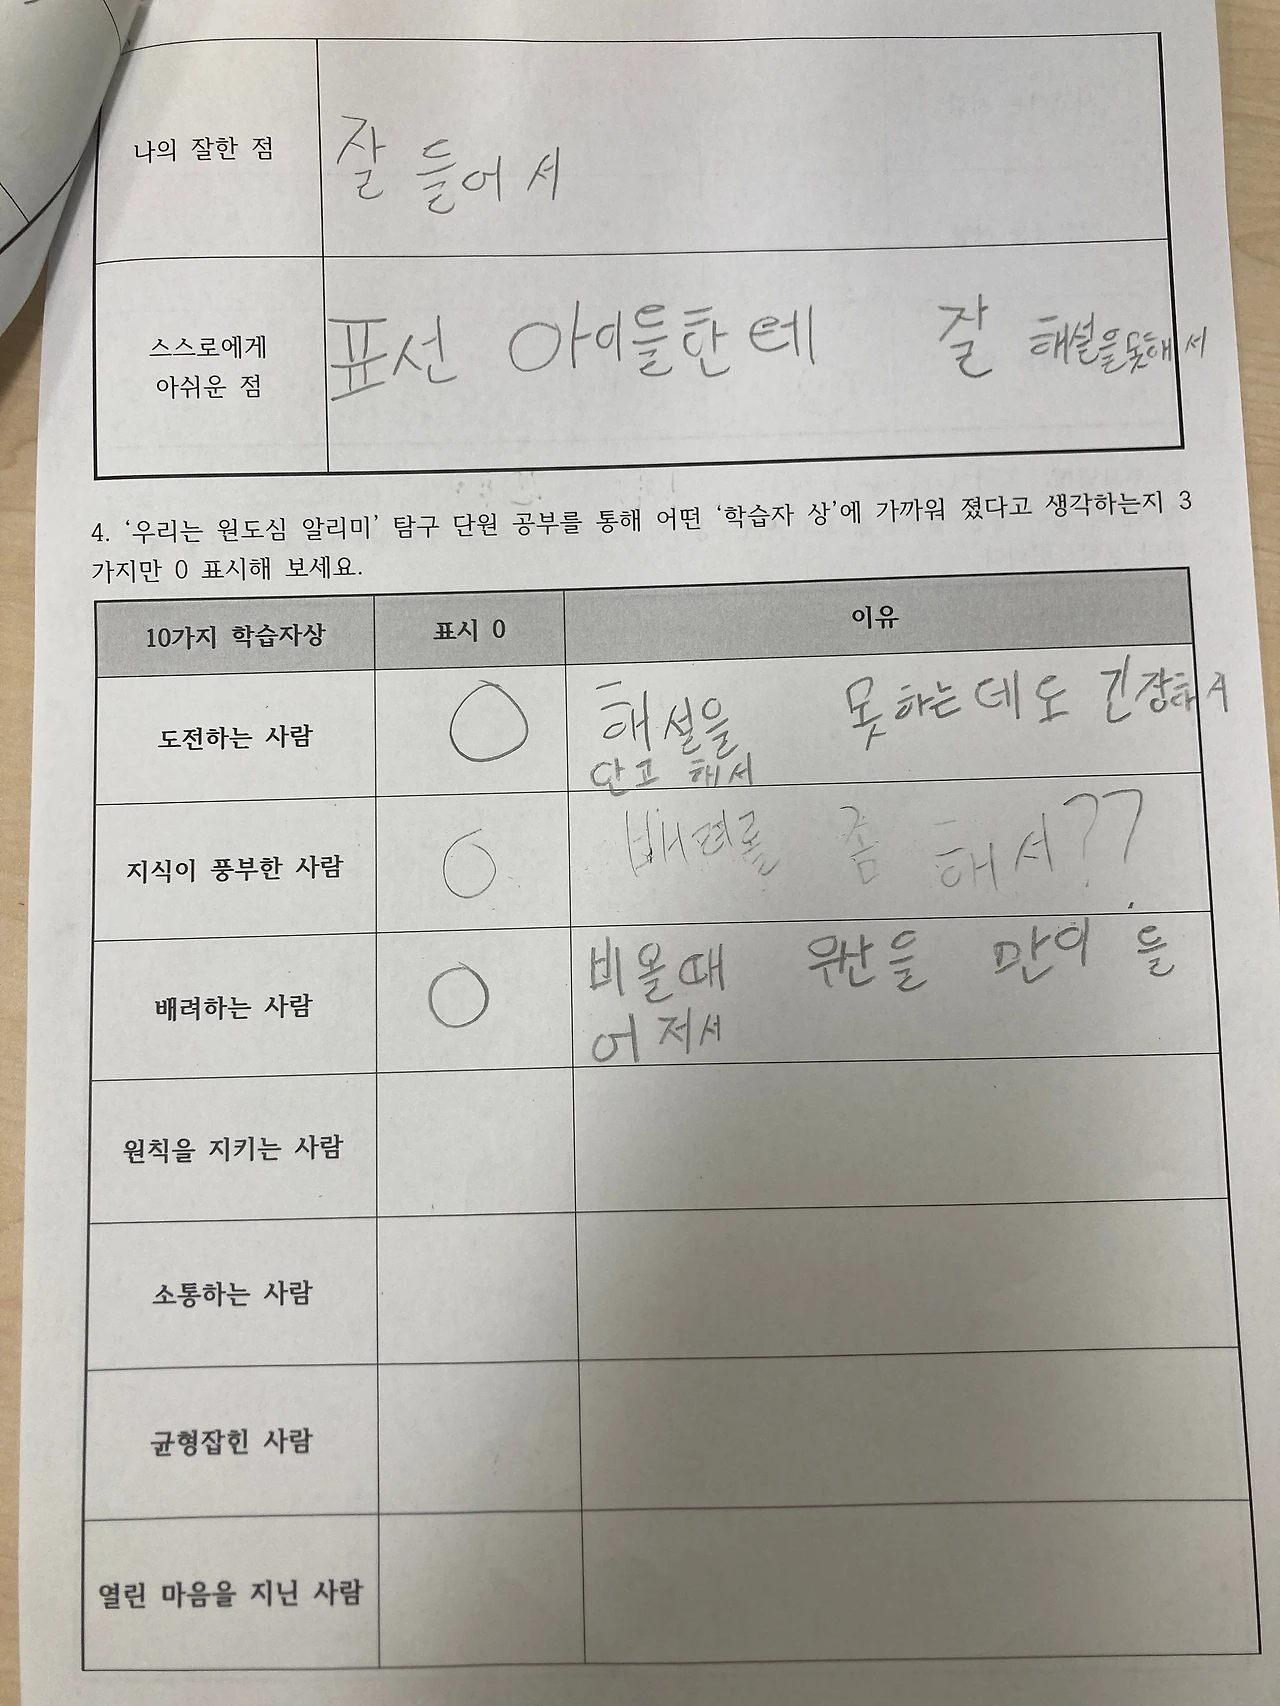 나의 잘한 점
잘 들어서
스스로에게
아쉬운 점
표선 아이들한테 잘 해설을못해서
4. ‘우리는 원도심 알리미’ 탐구 단원 공부를 통해 어떤 ‘학습자 상’에 가까워 졌다고 생각하는지 3
가지만 0 표시해 보세요.
10가지 학습자상 표시 0 이유
도전하는 사람 해설을 못하는데도 긴장하지
안고 해서
지식이 풍부한 사람 배려를 좀 해서??
배려하는 사람 비올때 우산을 만이 들
어저서
원칙을 지키는 사람
소통하는 사람
균형잡힌 사람
열린 마음을 지닌 사람